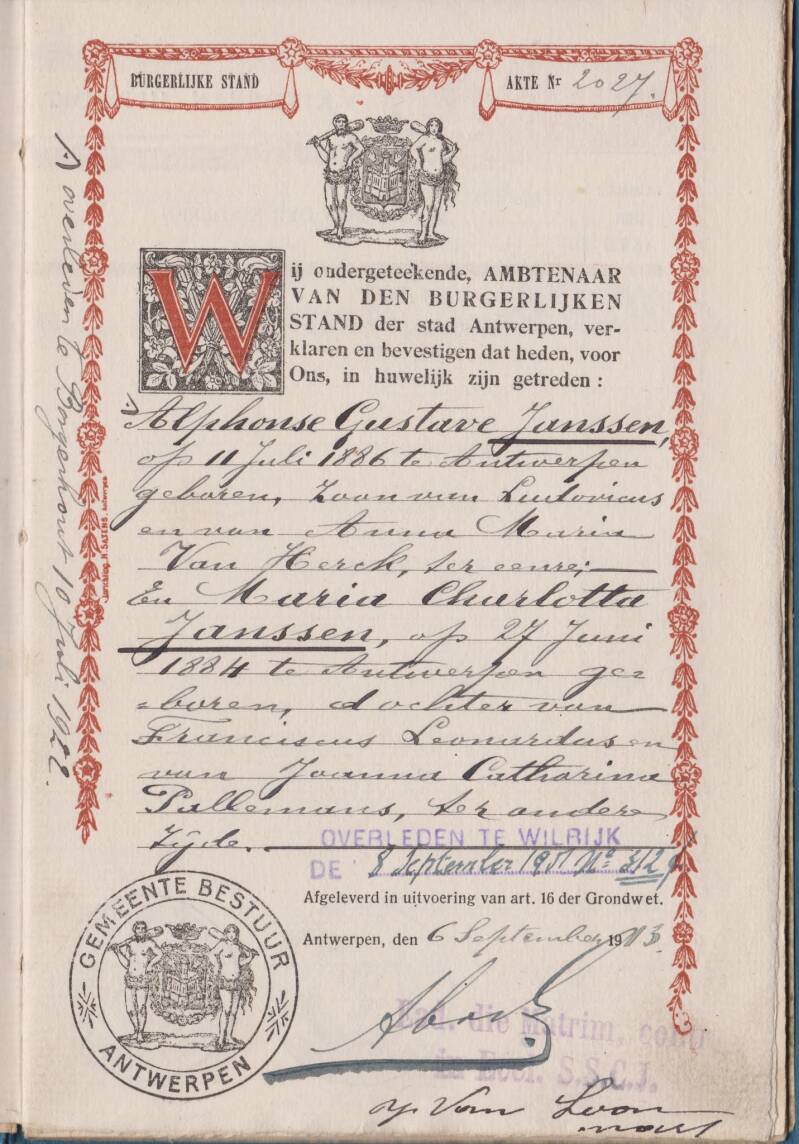 BURGERLIJKE STAND
AKTE Nr 2027.
Wij ondergeteekende, AMBTENAAR
VAN DEN BURGERLIJKEN
STAND der stad Antwerpen, ver-
klaren en bevestigen dat heden, voor
Ons, in huwelijk zijn getreden :
Alphonse Gustave Janssen,
op 11 Juli 1886 te Antwerpen
geboren, zoon van Ludovicus
en van Anna Maria
Van Herck, ter eenre;
En Maria Charlotta
Janssen, op 27 Juni
1884 te Antwerpen ge=
=boren, dochter van
Franciscus Leonardus en
van Joanna Catharina
Pallemans, ter andere
zijde.
OVERLEDEN TE WILRIJK
DE 8 September 1951 No 312
Afgeleverd in uitvoering van art. 16 der Grondwet.
Antwerpen, den 6 September 1913.
GEMEENTE BESTUUR
ANTWERPEN
Ead. die Matrim, contr
in Eccl. S.S.C.J.
Van Loon
overleden te Borgerhout 10 Juli 1922.
Inrichting H. SATENS. Antwerpen